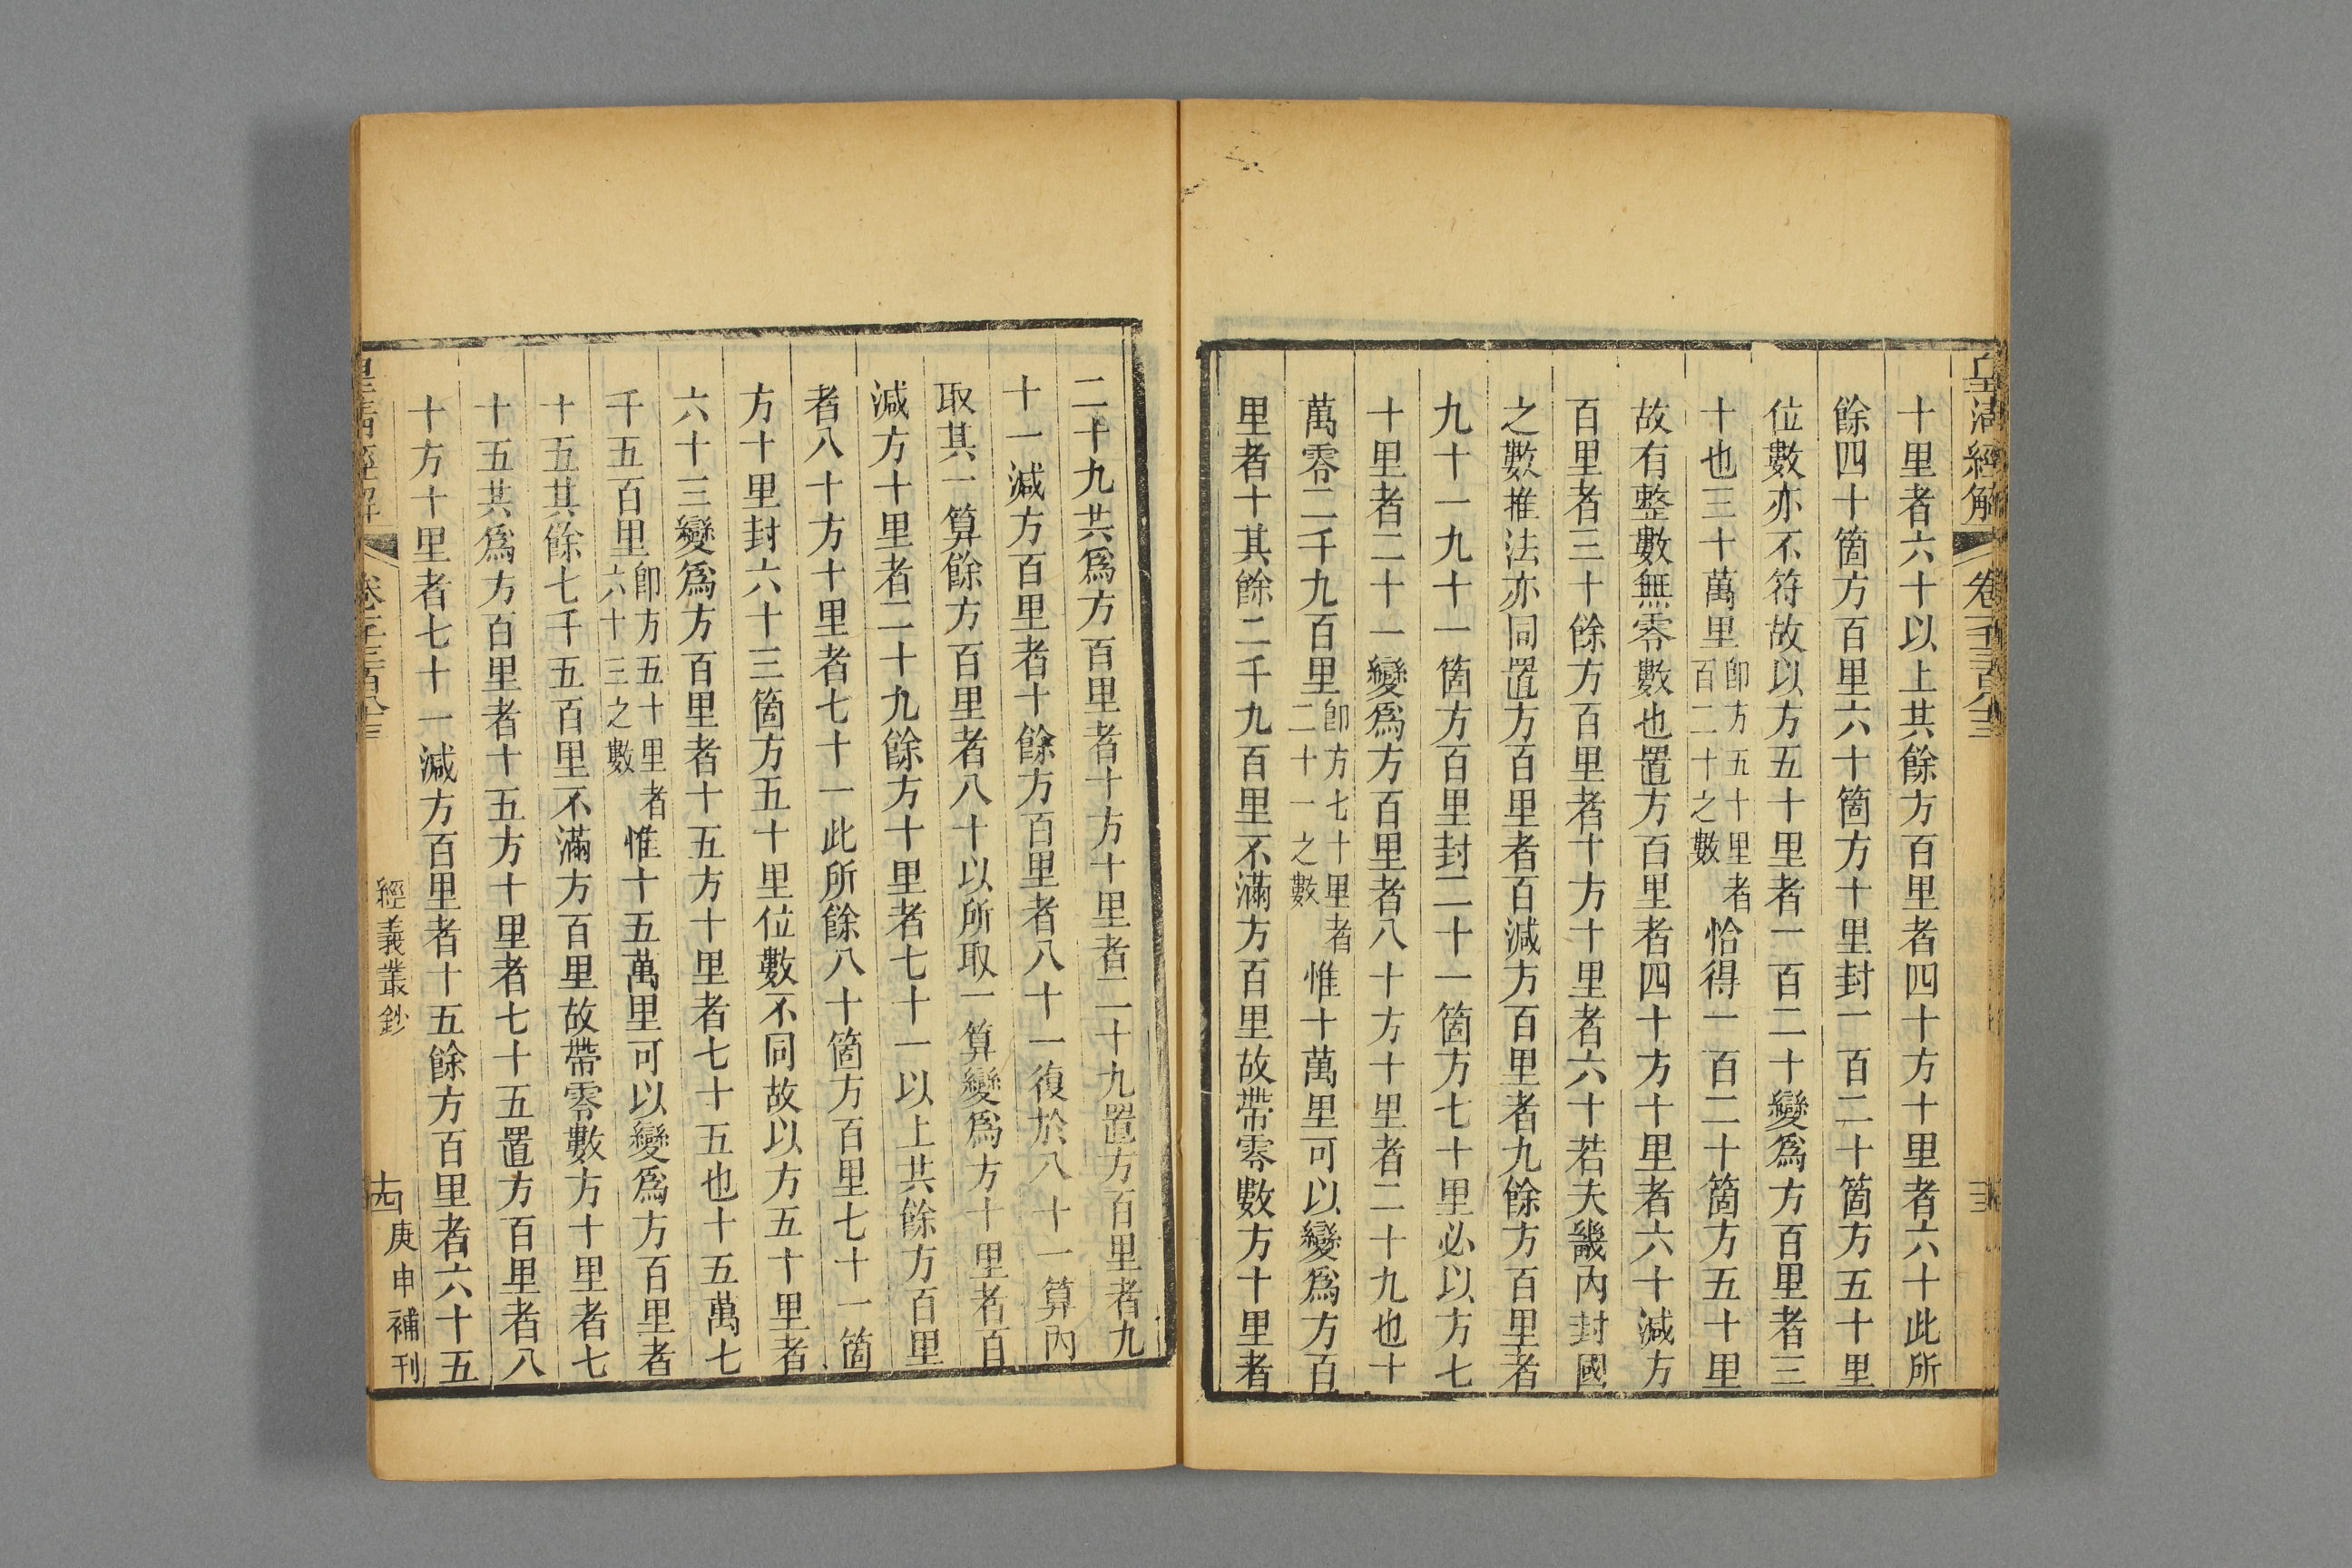 皇清經解
卷一千三百八十三
十里者六十以上共餘方百里者四十方十里者六十此所
餘四十箇方百里六十箇方十里封一百二十箇方五十里
位數亦不符故以方五十里者一百二十變爲方百里者三
十也三十萬里卽方五十里者百二十之數恰得一百二十箇方五十里
故有整數無零數也置方百里者四十方十里者六十減方
百里者三十餘方百里者十方十里者六十若夫畿內封國
之數推法亦同置方百里者百減方百里者九餘方百里者
九十一九十一箇方百里封二十一箇方七十里必以方七
十里者二十一變爲方百里者八十方十里者二十九也十
萬零二千九百里卽方七十里者二十一之數惟十萬里可以變爲方百
里者十其餘二千九百里不滿方百里故帶零數方十里者
二十九共爲方百里者十方十里者二十九置方百里者九
十一減方百里者十餘方百里者八十一復於八十一算內
取其一算餘方百里者八十以所取一算變爲方十里者百
減方十里者二十九餘方十里者七十一以上共餘方百里
者八十方十里者七十一此所餘八十箇方百里七十一箇
方十里封六十三箇方五十里位數不同故以方五十里者
六十三變爲方百里者十五方十里者七十五也十五萬七
千五百里卽方五十里者六十三之數惟十五萬里可以變爲方百里者
十五其餘七千五百里不滿方百里故帶零數方十里者七
十五共爲方百里者十五方十里者七十五置方百里者八
十方十里者七十一減方百里者十五餘方百里者六十五
皇清經解
經義叢鈔
十四
庚申補刊